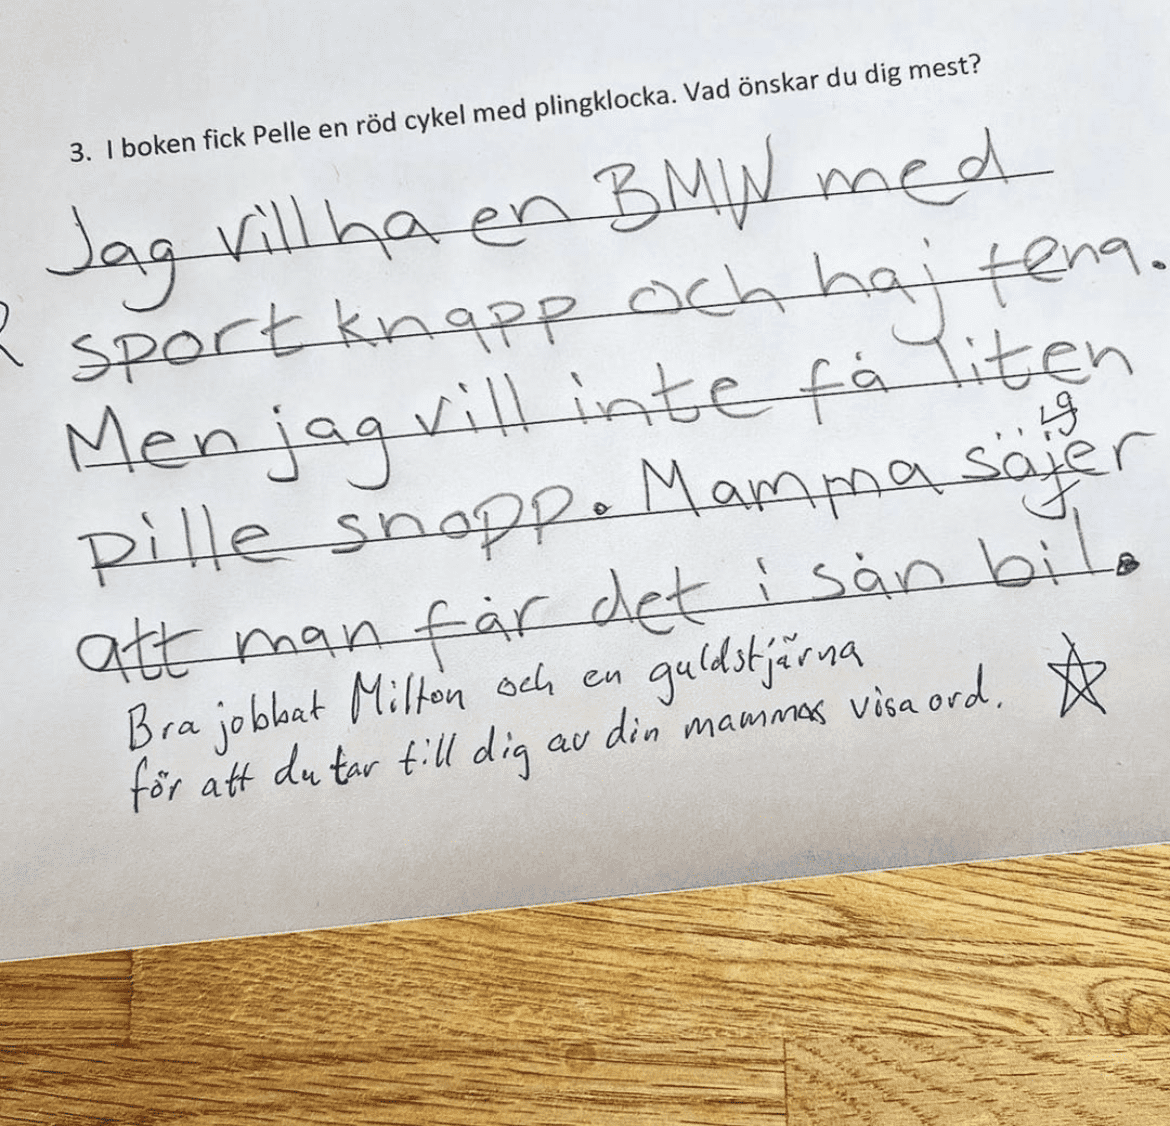 3. I boken fick Pelle en röd cykel med plingklocka. Vad önskar du dig mest?
Jag vill ha en BMW med
sport knapp och haj fena.
Men jag vill inte få liten
pille snopp. Mamma säjer
ig
att man får det i sån bil.
Bra jobbat Milton och en guldstjärna
för att du tar till dig av din mammas visa ord.